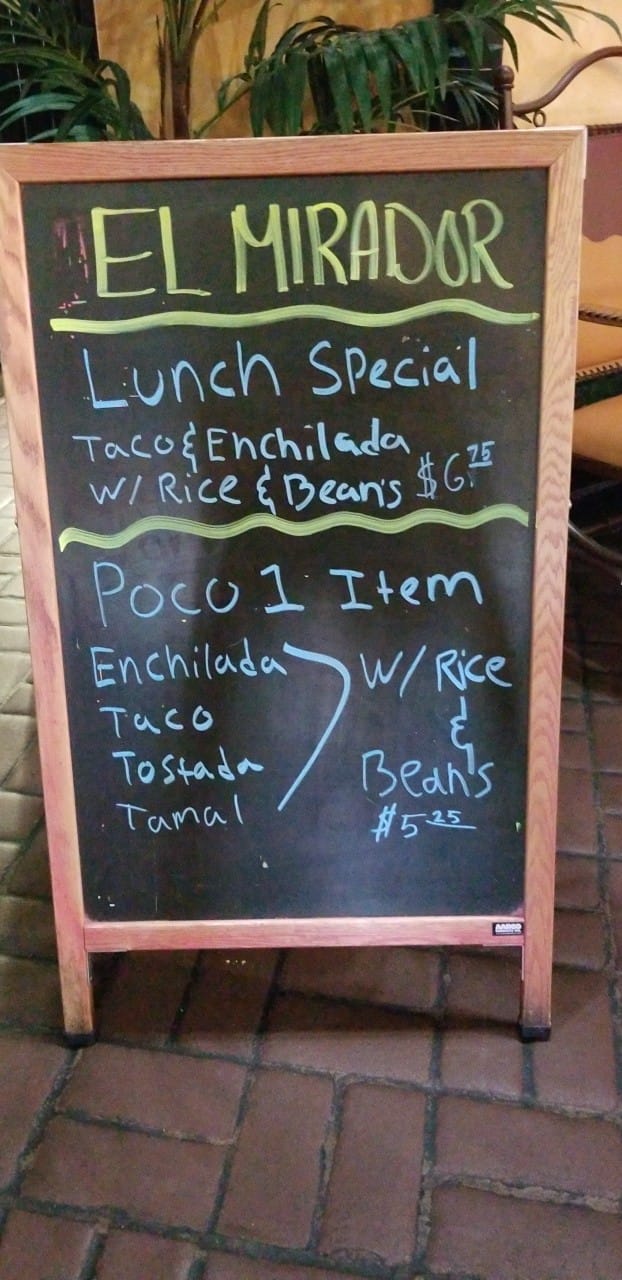 EL MIRADOR
Lunch Special
Taco & Enchilada
W/ Rice & Bean's $6.75
Poco 1 Item
Enchilada W/ Rice
Taco &
Tostada Bean's
Tamal $5 25
AARCO